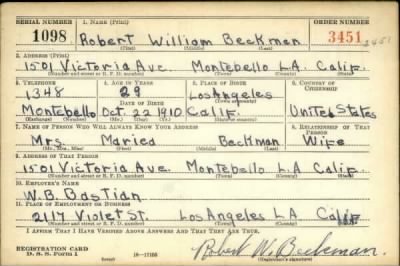 SERIAL NUMBER 1. NAME (Print) ORDER NUMBER
1098 Robert William Beckman 3451 3451
(First) (Middle) (Last)
2. ADDRESS (Print)
1501 Victoria Ave. Montebello L.A. Calif.
(Number and street or R. F. D. number) (Town) (County) (State)
3. TELEPHONE 4. AGE IN YEARS 5. PLACE OF BIRTH 6. COUNTRY OF CITIZENSHIP
1348 29 Los Angeles
DATE OF BIRTH
Montebello Oct. 22 1910 Calif. United States
(Exchange) (Number) (Mo.) (Day) (Yr.) (State or country)
7. NAME OF PERSON WHO WILL ALWAYS KNOW YOUR ADDRESS 8. RELATIONSHIP OF THAT PERSON
Mrs. Maried Beckman Wife
(Mr., Mrs., Miss) (First) (Middle) (Last)
9. ADDRESS OF THAT PERSON
1501 Victoria Ave Montebello L.A. Calif.
(Number and street or R. F. D. number) (Town) (County) (State)
10. EMPLOYER'S NAME
W.B. Bastian
11. PLACE OF EMPLOYMENT OR BUSINESS
2117 Violet St. Los Angeles L.A. Calif
(Number and street or R. F. D. number) (Town) (County) (State)
I AFFIRM THAT I HAVE VERIFIED ABOVE ANSWERS AND THAT THEY ARE TRUE.
REGISTRATION CARD
D. S. S. Form 1 16—17105 Robert W. Beckman.